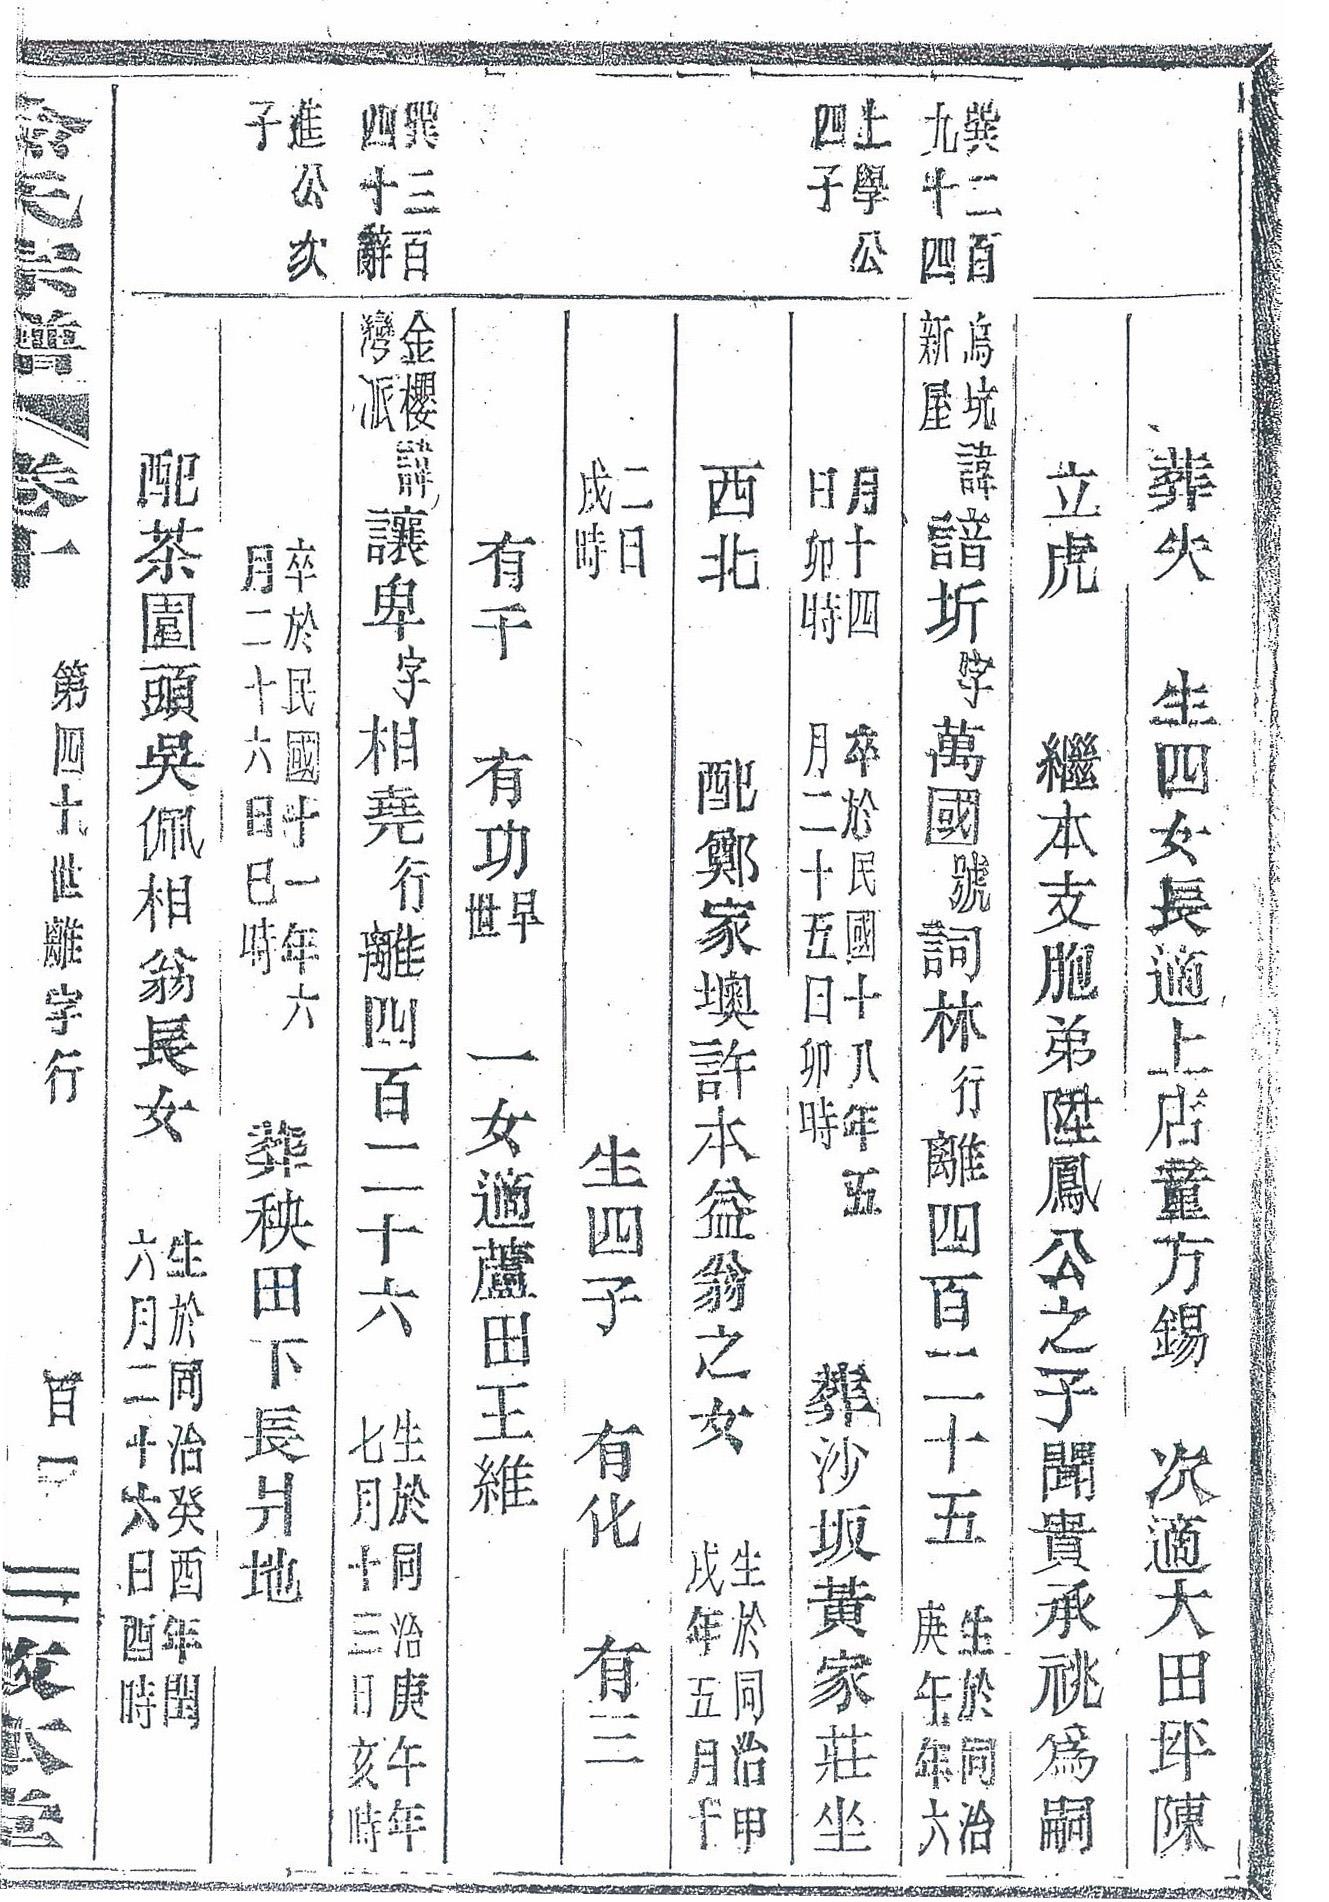 葬失　生四女長適上店童方錫　次適大田坪陳
立虎　繼本支胞弟陞鳳公之子聞貴承祧為嗣
巽二百
九十四
烏坑
新屋
諱諳圻字萬國號詞林行離四百二十五
生於同治
庚午年六
土學公
四子
月十四
日卯時
卒於民國十八年五
月二十五日卯時
葬沙坂黃家莊坐
西北　配鄭家墺許本益翁之女
生於同治甲
戌年五月十
二日
戌時
生四子　有化　有三
有千　有功
早
世
一女適蘆田王維
巽三百
四十辭
金櫻
灣派
諱讓卑字相堯行離四百二十六
生於同治庚午年
七月十三日亥時
進公次
子
卒於民國十一年六
月二十六日巳時
葬秧田下長爿地
配茶園頭吳佩相翁長女
生於同治癸酉年閏
六月二十六日酉時
氏宗譜　卷十一　第四十世離字行　百一　敦本堂